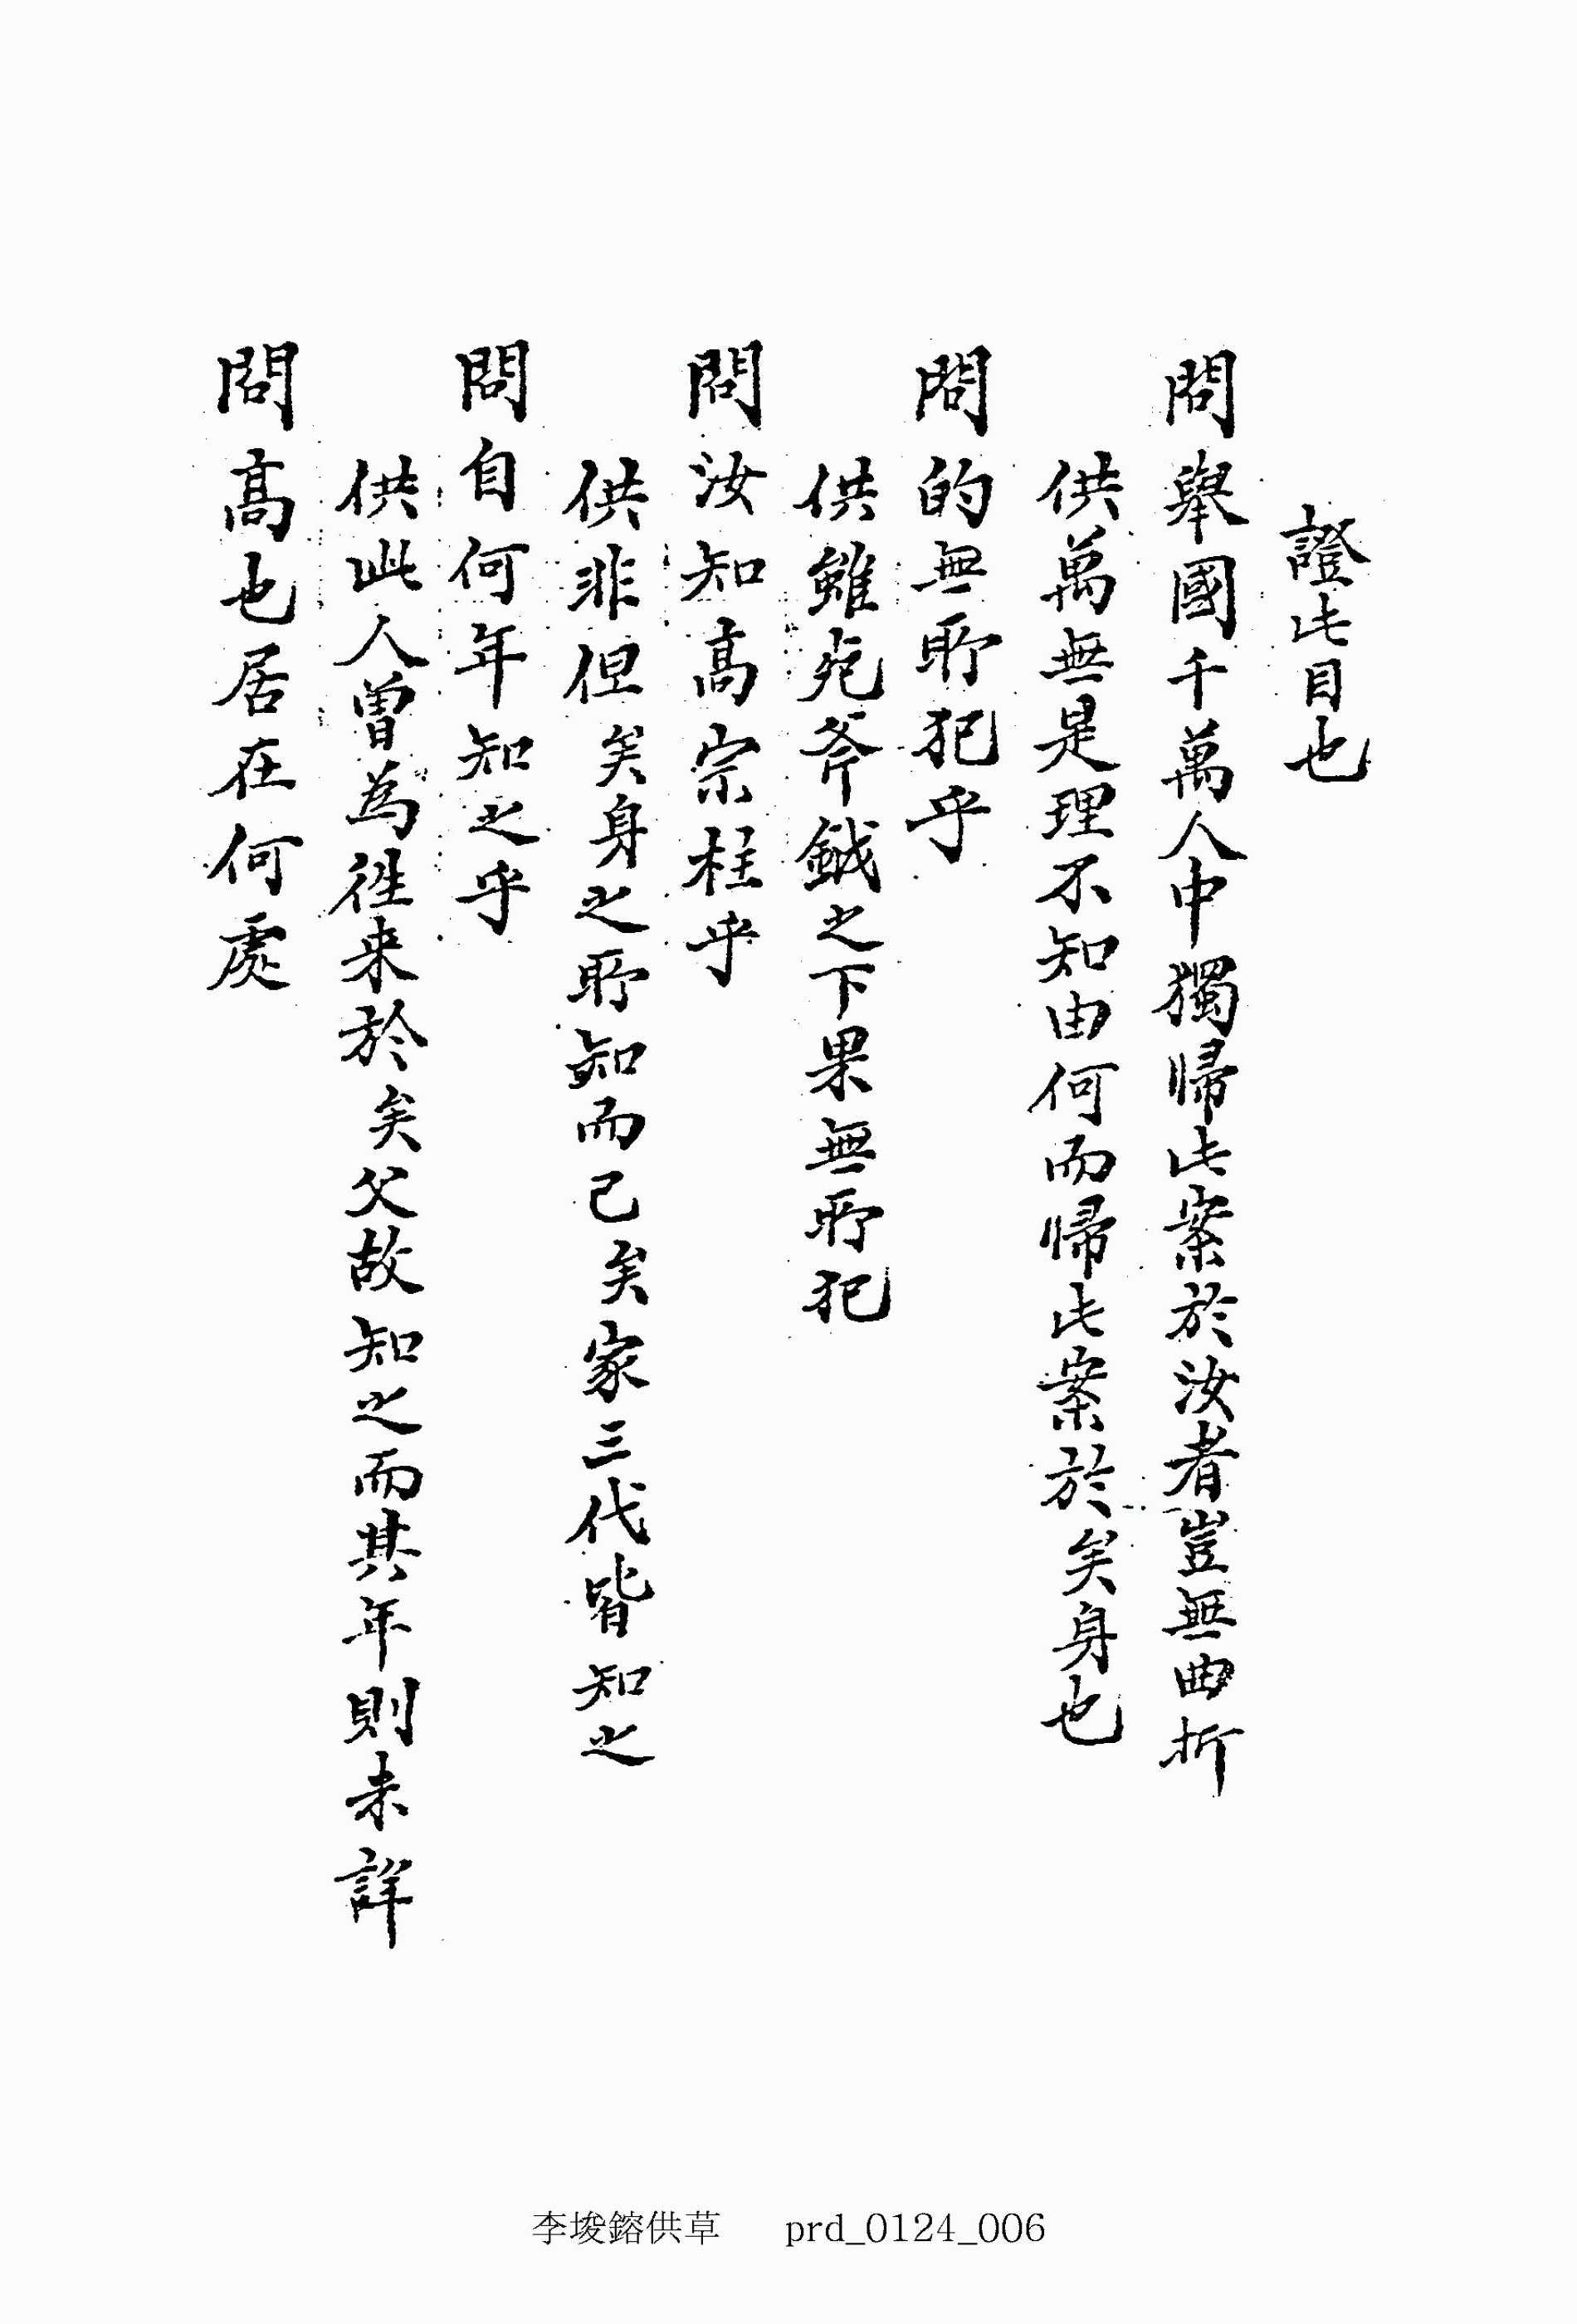 證此目也
問擧國千萬人中獨歸此案於汝者豈無曲折
供萬無是理不知由何而歸此案於矣身也
問的無所犯乎
供雖死斧鉞之下果無所犯
問汝知高宗柱乎
供非但矣身之所知而已矣家三代皆知之
問自何年知之乎
供此人曾爲徃来於矣父故知之而其年則未詳
問高也居在何處
李埈鎔供草 prd_0124_006